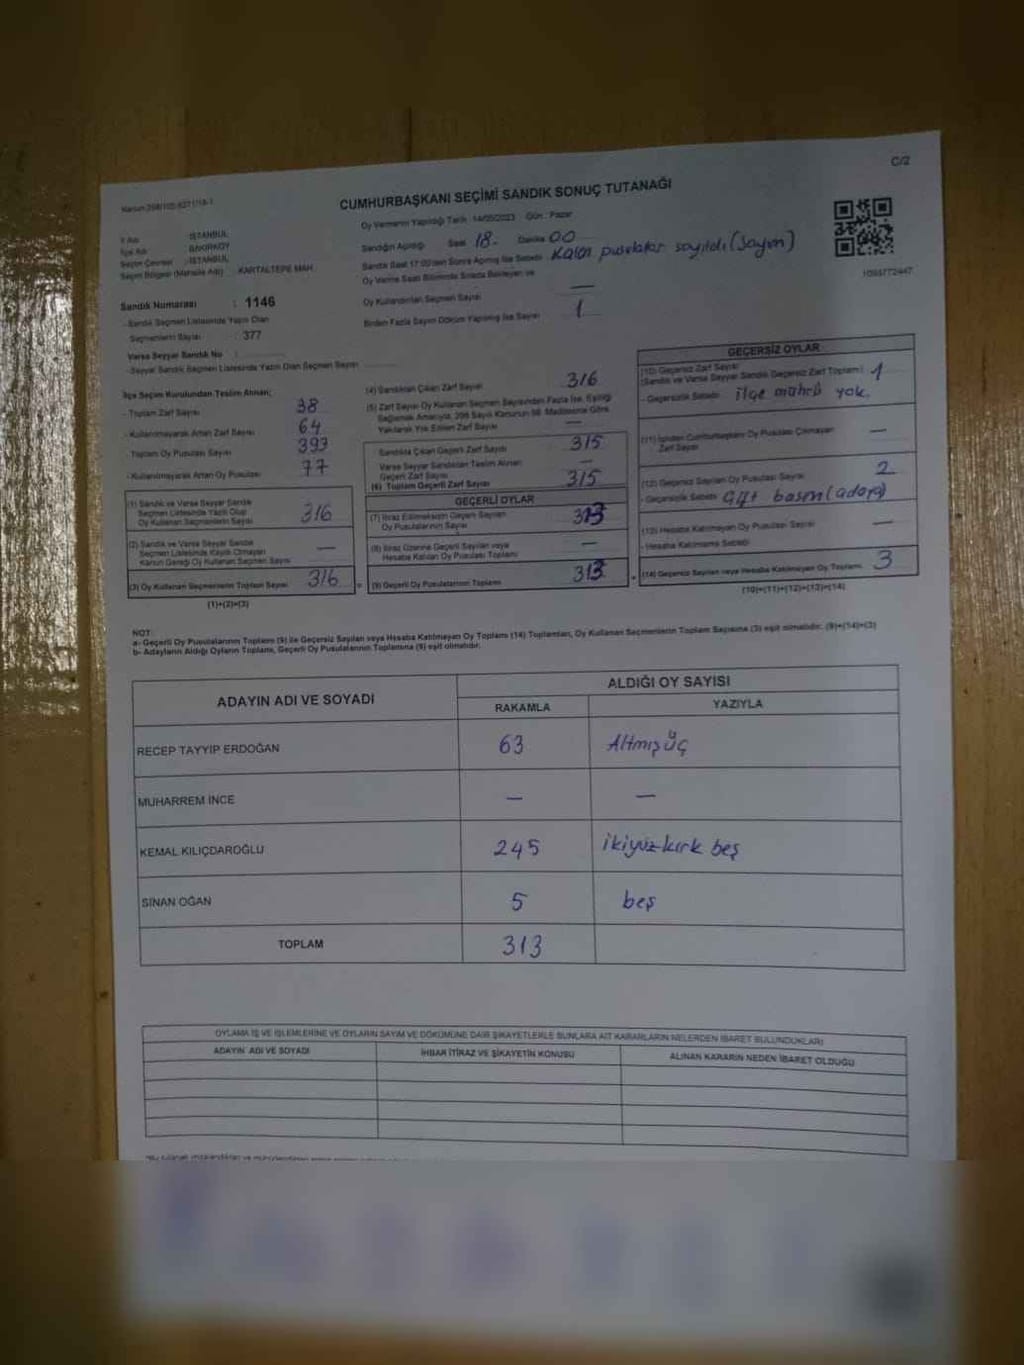 C/2
Kanun:298/105,6271/18-1
CUMHURBAŞKANI SEÇİMİ SANDIK SONUÇ TUTANAĞI
Oy Vermenin Yapıldığı Tarih : 14/05/2023 Gün : Pazar
İl Adı : İSTANBUL
İlçe Adı : BAKIRKÖY
Seçim Çevresi : İSTANBUL
Seçim Bölgesi (Mahalle Adı) : KARTALTEPE MAH.
Sandığın Açıldığı Saat 18. Dakika 00
Sandık Saat 17:00'den Sonra Açılmış İse Sebebi : Kalan pusulalar sayıldı (sayım)
Oy Verme Saati Bitiminde Sırada Bekleyen ve
Oy Kullandırılan Seçmen Sayısı —
Birden Fazla Sayım Döküm Yapılmış İse Sayısı 1
1093772447
Sandık Numarası : 1146
- Sandık Seçmen Listesinde Yazılı Olan
Seçmenlerin Sayısı : 377
Varsa Seyyar Sandık No :
- Seyyar Sandık Seçmen Listesinde Yazılı Olan Seçmen Sayısı
İlçe Seçim Kurulundan Teslim Alınan;
- Toplam Zarf Sayısı 38
- Kullanılmayarak Artan Zarf Sayısı 64
- Toplam Oy Pusulası Sayısı 393
- Kullanılmayarak Artan Oy Pusulası 77
(1) Sandık ve Varsa Seyyar Sandık
Seçmen Listesinde Yazılı Olup
Oy Kullanan Seçmenlerin Sayısı 316
(2) Sandık ve Varsa Seyyar Sandık
Seçmen Listesinde Kayıtlı Olmayan
Kanun Gereği Oy Kullanan Seçmen Sayısı —
(3) Oy Kullanan Seçmenlerin Toplam Sayısı 316
(1)+(2)=(3)
(4) Sandıktan Çıkan Zarf Sayısı 316
(5) Zarf Sayısı Oy Kullanan Seçmen Sayısından Fazla İse, Eşitliği
Sağlamak Amacıyla, 298 Sayılı Kanunun 98. Maddesine Göre
Yakılarak Yok Edilen Zarf Sayısı —
Sandıkta Çıkan Geçerli Zarf Sayısı 315
Varsa Seyyar Sandıktan Teslim Alınan
Geçerli Zarf Sayısı
(6) Toplam Geçerli Zarf Sayısı 315
GEÇERLİ OYLAR
(7) İtiraz Edilmeksizin Geçerli Sayılan
Oy Pusulalarının Sayısı 313
(8) İtiraz Üzerine Geçerli Sayılan veya
Hesaba Katılan Oy Pusulası Toplamı —
(9) Geçerli Oy Pusulalarının Toplamı 313
GEÇERSİZ OYLAR
(10) Geçersiz Zarf Sayısı
(Sandık ve Varsa Seyyar Sandık Geçersiz Zarf Toplamı) 1
- Geçersizlik Sebebi : ilçe mührü yok.
(11) İçinden Cumhurbaşkanı Oy Pusulası Çıkmayan
Zarf Sayısı —
(12) Geçersiz Sayılan Oy Pusulası Sayısı 2
- Geçersizlik Sebebi : Çift basım
(13) Hesaba Katılmayan Oy Pusulası Sayısı —
- Hesaba Katılmama Sebebi
(14) Geçersiz Sayılan veya Hesaba Katılmayan Oy Toplamı 3
(10)+(11)+(12)+(13)=(14)
NOT:
a- Geçerli Oy Pusulalarının Toplamı (9) ile Geçersiz Sayılan veya Hesaba Katılmayan Oy Toplamı (14) Toplamları, Oy Kullanan Seçmenlerin Toplam Sayısına (3) eşit olmalıdır. (9)+(14)=(3)
b- Adayların Aldığı Oyların Toplamı, Geçerli Oy Pusulalarının Toplamına (9) eşit olmalıdır.
ADAYIN ADI VE SOYADI
ALDIĞI OY SAYISI
RAKAMLA YAZIYLA
RECEP TAYYİP ERDOĞAN 63 Altmışüç
MUHARREM İNCE — —
KEMAL KILIÇDAROĞLU 245 ikiyüzkırk beş
SİNAN OĞAN 5 beş
TOPLAM 313
OYLAMA İŞ VE İŞLEMLERİNE VE OYLARIN SAYIM VE DÖKÜMÜNE DAİR ŞİKAYETLERLE BUNLARA AİT KARARLARIN NELERDEN İBARET BULUNDUKLARI
ADAYIN ADI VE SOYADI İHBAR İTİRAZ VE ŞİKAYETİN KONUSU ALINAN KARARIN NEDEN İBARET OLDUĞU